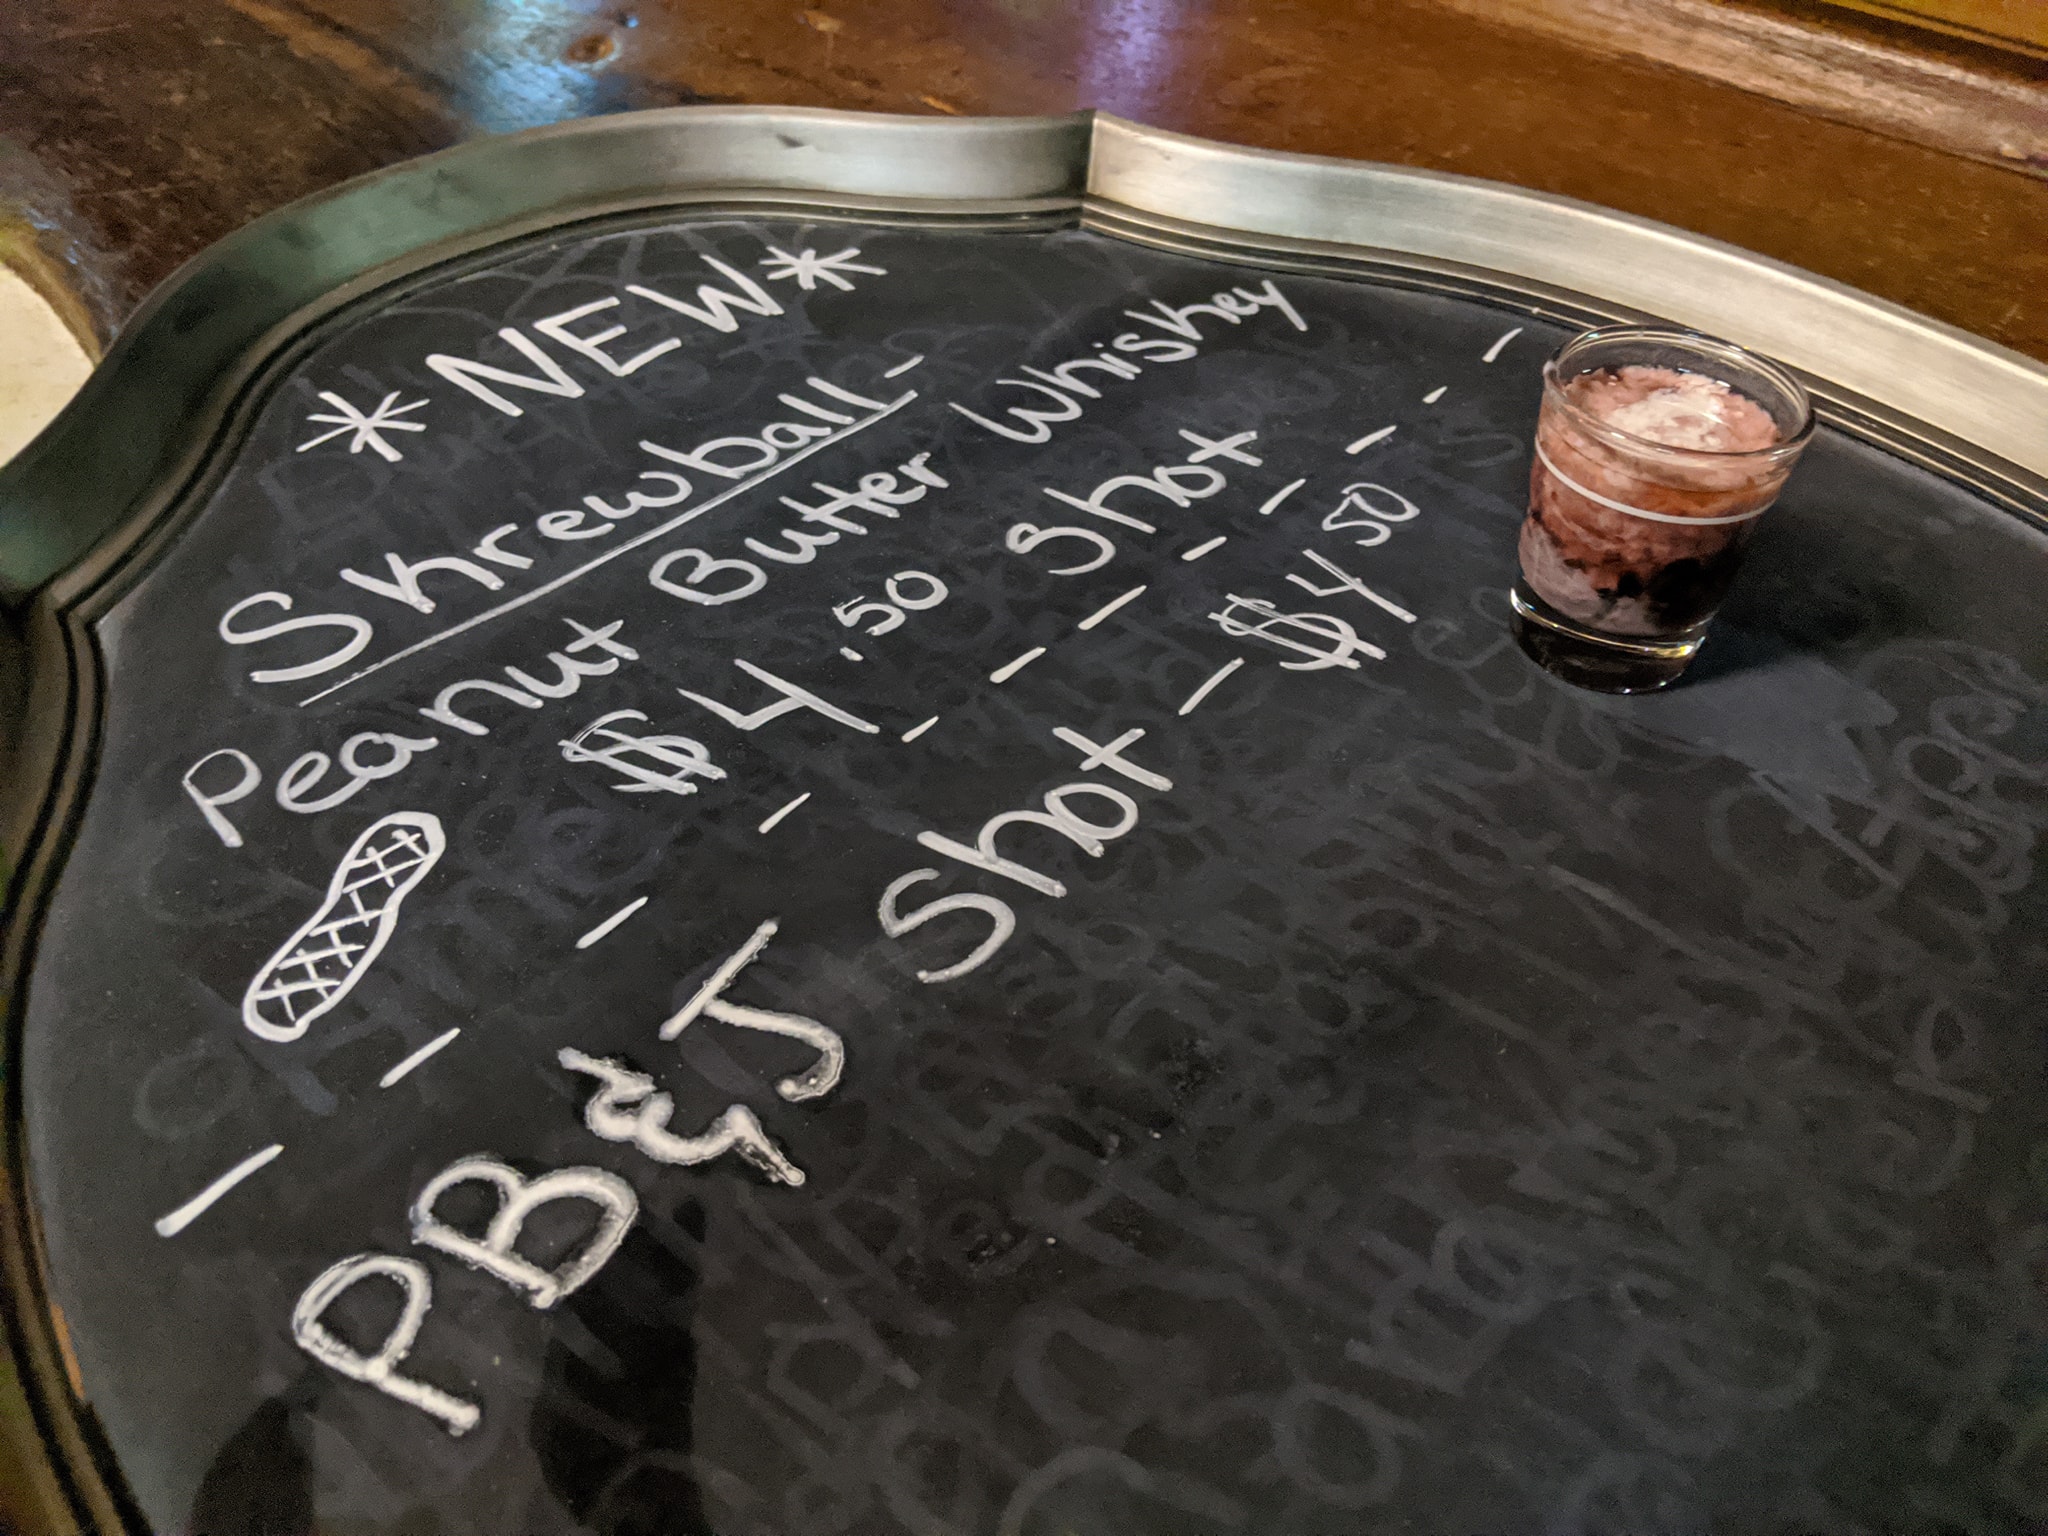 *NEW*
Shrewball -
Peanut Butter Whishey
$4.50 Shot
PB&J Shot - $4 50